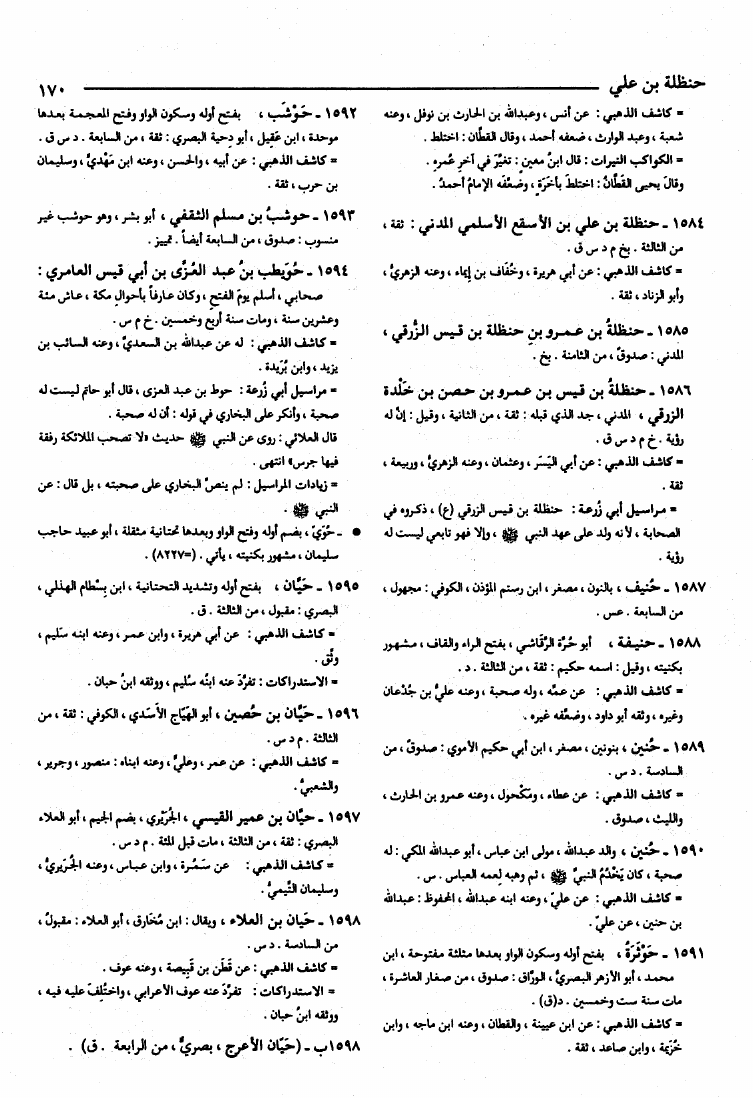 حنظلة بن علي
١٧٠
= كاشف الذهبي : عن أنس ، وعبدالله بن الحارث بن نوفل ، وعنه
شعبة ، وعبد الوارث ، ضعفه أحمد ، وقال القطّان : اختلط .
= الكواكب النيرات : قال ابنُ معينٍ : تغيَّر في آخرِ عُمرِهِ .
وقالَ يحيى القطَّانُ : اختلطَ بأَخَرَةٍ ، وضعَّفه الإمامُ أحمدُ .
١٥٨٤ ـ حنظلة بن علي بن الأسقع الأسلمي المدني : ثقة ،
من الثالثة . بخ م د س ق .
= كاشف الذهبي : عن أبي هريرة ، وخُفَاف بن إيماء ، وعنه الزهريُّ ،
وأبو الزناد ، ثقة .
١٥٨٥ ـ حنظلةُ بن عمرو بنِ حنظلة بن قيس الزُّرقي ،
المدني : صدوقٌ ، من الثامنة . بخ .
١٥٨٦ ـ حنظلةُ بن قيس بن عمرو بن حصن بن خَلْدة
الزرقي ، المدني ، جد الذي قبله : ثقة ، من الثانية ، وقيل : إنَّ له
رؤية . خ م د س ق .
= كاشف الذهبي : عن أبي اليَسَر ، وعثمان ، وعنه الزهريُّ ، وربيعة ،
ثقة .
= مراسيل أبي زُرعة : حنظلة بن قيس الزرقي (ع) ، ذكروه في
الصحابة ، لأنه ولد على عهد النبي ﷺ ، وإلا فهو تابعي ليست له
رؤية .
١٥٨٧ ـ حُنيف ، بالنون ، مصغر ، ابن رستم المؤذن ، الكوفي : مجهول ،
من السابعة . عس .
١٥٨٨ ـ حنيفة ، أبو حُرَّة الرَّقاشي ، بفتح الراء والقاف ، مشهور
بكنيته ، وقيل : اسمه حكيم : ثقة ، من الثالثة . د .
= كاشف الذهبي : عن عمَّه ، وله صحبة ، وعنه عليُّ بن جُدْعان
وغيره ، وثقه أبو داود ، وضعَّفه غيره .
١٥٨٩ ـ حُنَين ، بنونين ، مصغر ، ابن أبي حكيم الأموي : صدوقٌ ، من
السادسة . د س .
= كاشف الذهبي : عن عطاء ، ومَكْحول ، وعنه عمرو بن الحارث ،
والليث ، صدوق .
١٥٩٠ ـ حُنَين ، والد عبدالله ، مولى ابن عباس ، أبو عبدالله المكي : له
صحبة ، كان يَخْدُمُ النبيَّ ﷺ ، ثم وهبه لِعمه العباس . س .
= كاشف الذهبي : عن عليّ ، وعنه ابنه عبدالله ، المحفوظ : عبدالله
بن حنين ، عن عليّ .
١٥٩١ ـ حَوْثَرَةُ ، بفتح أوله وسكون الواو بعدها مثلثة مفتوحة ، ابن
محمد ، أبو الأزهر البصريُّ ، الورَّاق : صدوق ، من صغار العاشرة ،
مات سنة ست وخمسين . د(ق) .
= كاشف الذهبي : عن ابن عيينة ، والقطان ، وعنه ابن ماجه ، وابن
خُزَيمة ، وابن صاعد ، ثقة .
١٥٩٢ ـ حَوْشَب ، بفتح أوله وسكون الواو وفتح المعجمة بعدها
موحدة ، ابن عَقِيل ، أبو دِحية البصري : ثقة ، من السابعة . د س ق .
= كاشف الذهبي : عن أبيه ، والحسن ، وعنه ابن مَهْديُّ ، وسليمان
بن حرب ، ثقة .
١٥٩٣ ـ حوشبُ بن مسلم الثقفي ، أبو بشر ، وهو حوشب غير
منسوب : صدوق ، من السابعة أيضاً . تمييز .
١٥٩٤ ـ حُوَيطب بنُ عبد العُزَّى بن أبي قيس العامري :
صحابي ، أسلم يومَ الفتح ، وكان عارفاً بأحوال مكة ، عاش مئة
وعشرين سنة ، ومات سنة أربع وخمسين . خ م س .
= كاشف الذهبي : له عن عبدالله بن السعديُّ ، وعنه السائب بن
يزيد ، وابن بُرَيدة .
= مراسيل أبي زُرعة : حوط بن عبد العزى ، قال أبو حاتم ليست له
صحبة ، وأنكر على البخاري في قوله : أن له صحبة .
قال العلائي : روى عن النبي ﷺ حديث «لا تصحب الملائكة رفقة
فيها جرس» انتهى .
= زيادات المراسيل : لم ينصَّ البخاري على صحبته ، بل قال : عن
النبي ﷺ .
● ـ حُوَيّ ، بضم أوله وفتح الواو وبعدها تحتانية مثقلة ، أبو عبيد حاجب
سليمان ، مشهور بكنيته ، يأتي . (=٨٢٢٧) .
١٥٩٥ ـ حَيَّان ، بفتح أوله وتشديد التحتانية ، ابن بِسْطام الهذلي ،
البصري : مقبول ، من الثالثة . ق .
= كاشف الذهبي : عن أبي هريرة ، وابن عمر ، وعنه ابنه سَليم ،
وثِّق .
= الاستدراكات : تفرَّدَ عنه ابنُه سُليم ، ووثقه ابنُ حبان .
١٥٩٦ ـ حَيَّان بن حُصين ، أبو الهَيَّاج الأَسَدي ، الكوفي : ثقة ، من
الثالثة . م د س .
= كاشف الذهبي : عن عمر ، وعليُّ ، وعنه ابناه : منصور ، وجرير ،
والشعبيُّ .
١٥٩٧ ـ حيَّان بن عمير القيسي ، الجُرَيْري ، بضم الجيم ، أبو العلاء
البصري : ثقة ، من الثالثة ، مات قبل المئة . م د س .
= كاشف الذهبي : عن سَمُرة ، وابن عباس ، وعنه الجُرَيريُّ ،
وسليمان التَّيميُّ .
١٥٩٨ ـ حَيان بن العلاء ، ويقال : ابن مُخَارق ، أبو العلاء : مقبولٌ ،
من السادسة . د س .
= كاشف الذهبي : عن قَطَن بن قَبِيصة ، وعنه عوف .
= الاستدراكات : تفرَّدَ عنه عوف الأعرابي ، واختُلِفَ عليه فيه ،
ووثقه ابنُ حبان .
١٥٩٨ب ـ (حَيَّان الأعرج ، بصريُّ ، من الرابعة . ق) .